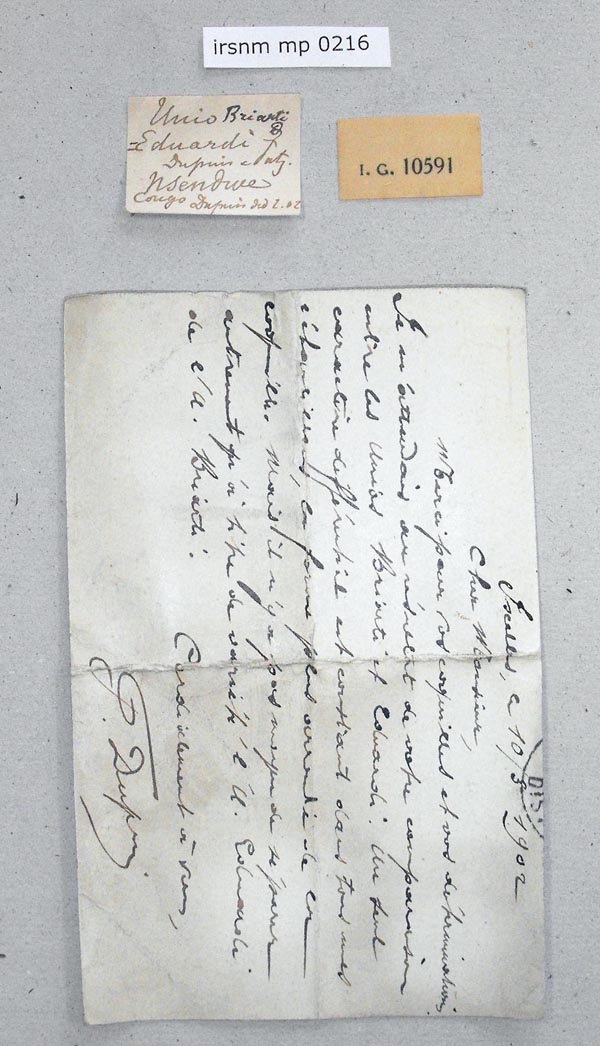 irsnm mp 0216
Unio Briarti
= Eduardi
Dupuis
Nsendwe
Congo Dupuis ded 2.02
I. G. 10591
Ixelles, le 10/3 1902
Cher Monsieur,
Merci pour vos coquilles et vos déterminations.
Je m'attendais au résultat de votre comparaison
entre les Unios Briarti et Eduardi. Un seul
caractère différentiel est constant dans tous mes
échantillons, la forme plus arrondie de la
coquille. Mais il n'y a pas moyen de séparer
autrement qu'à titre de variété l'U. Eduardi
de l'U. Briarti.
Cordialement à vous,
P. Dupuis